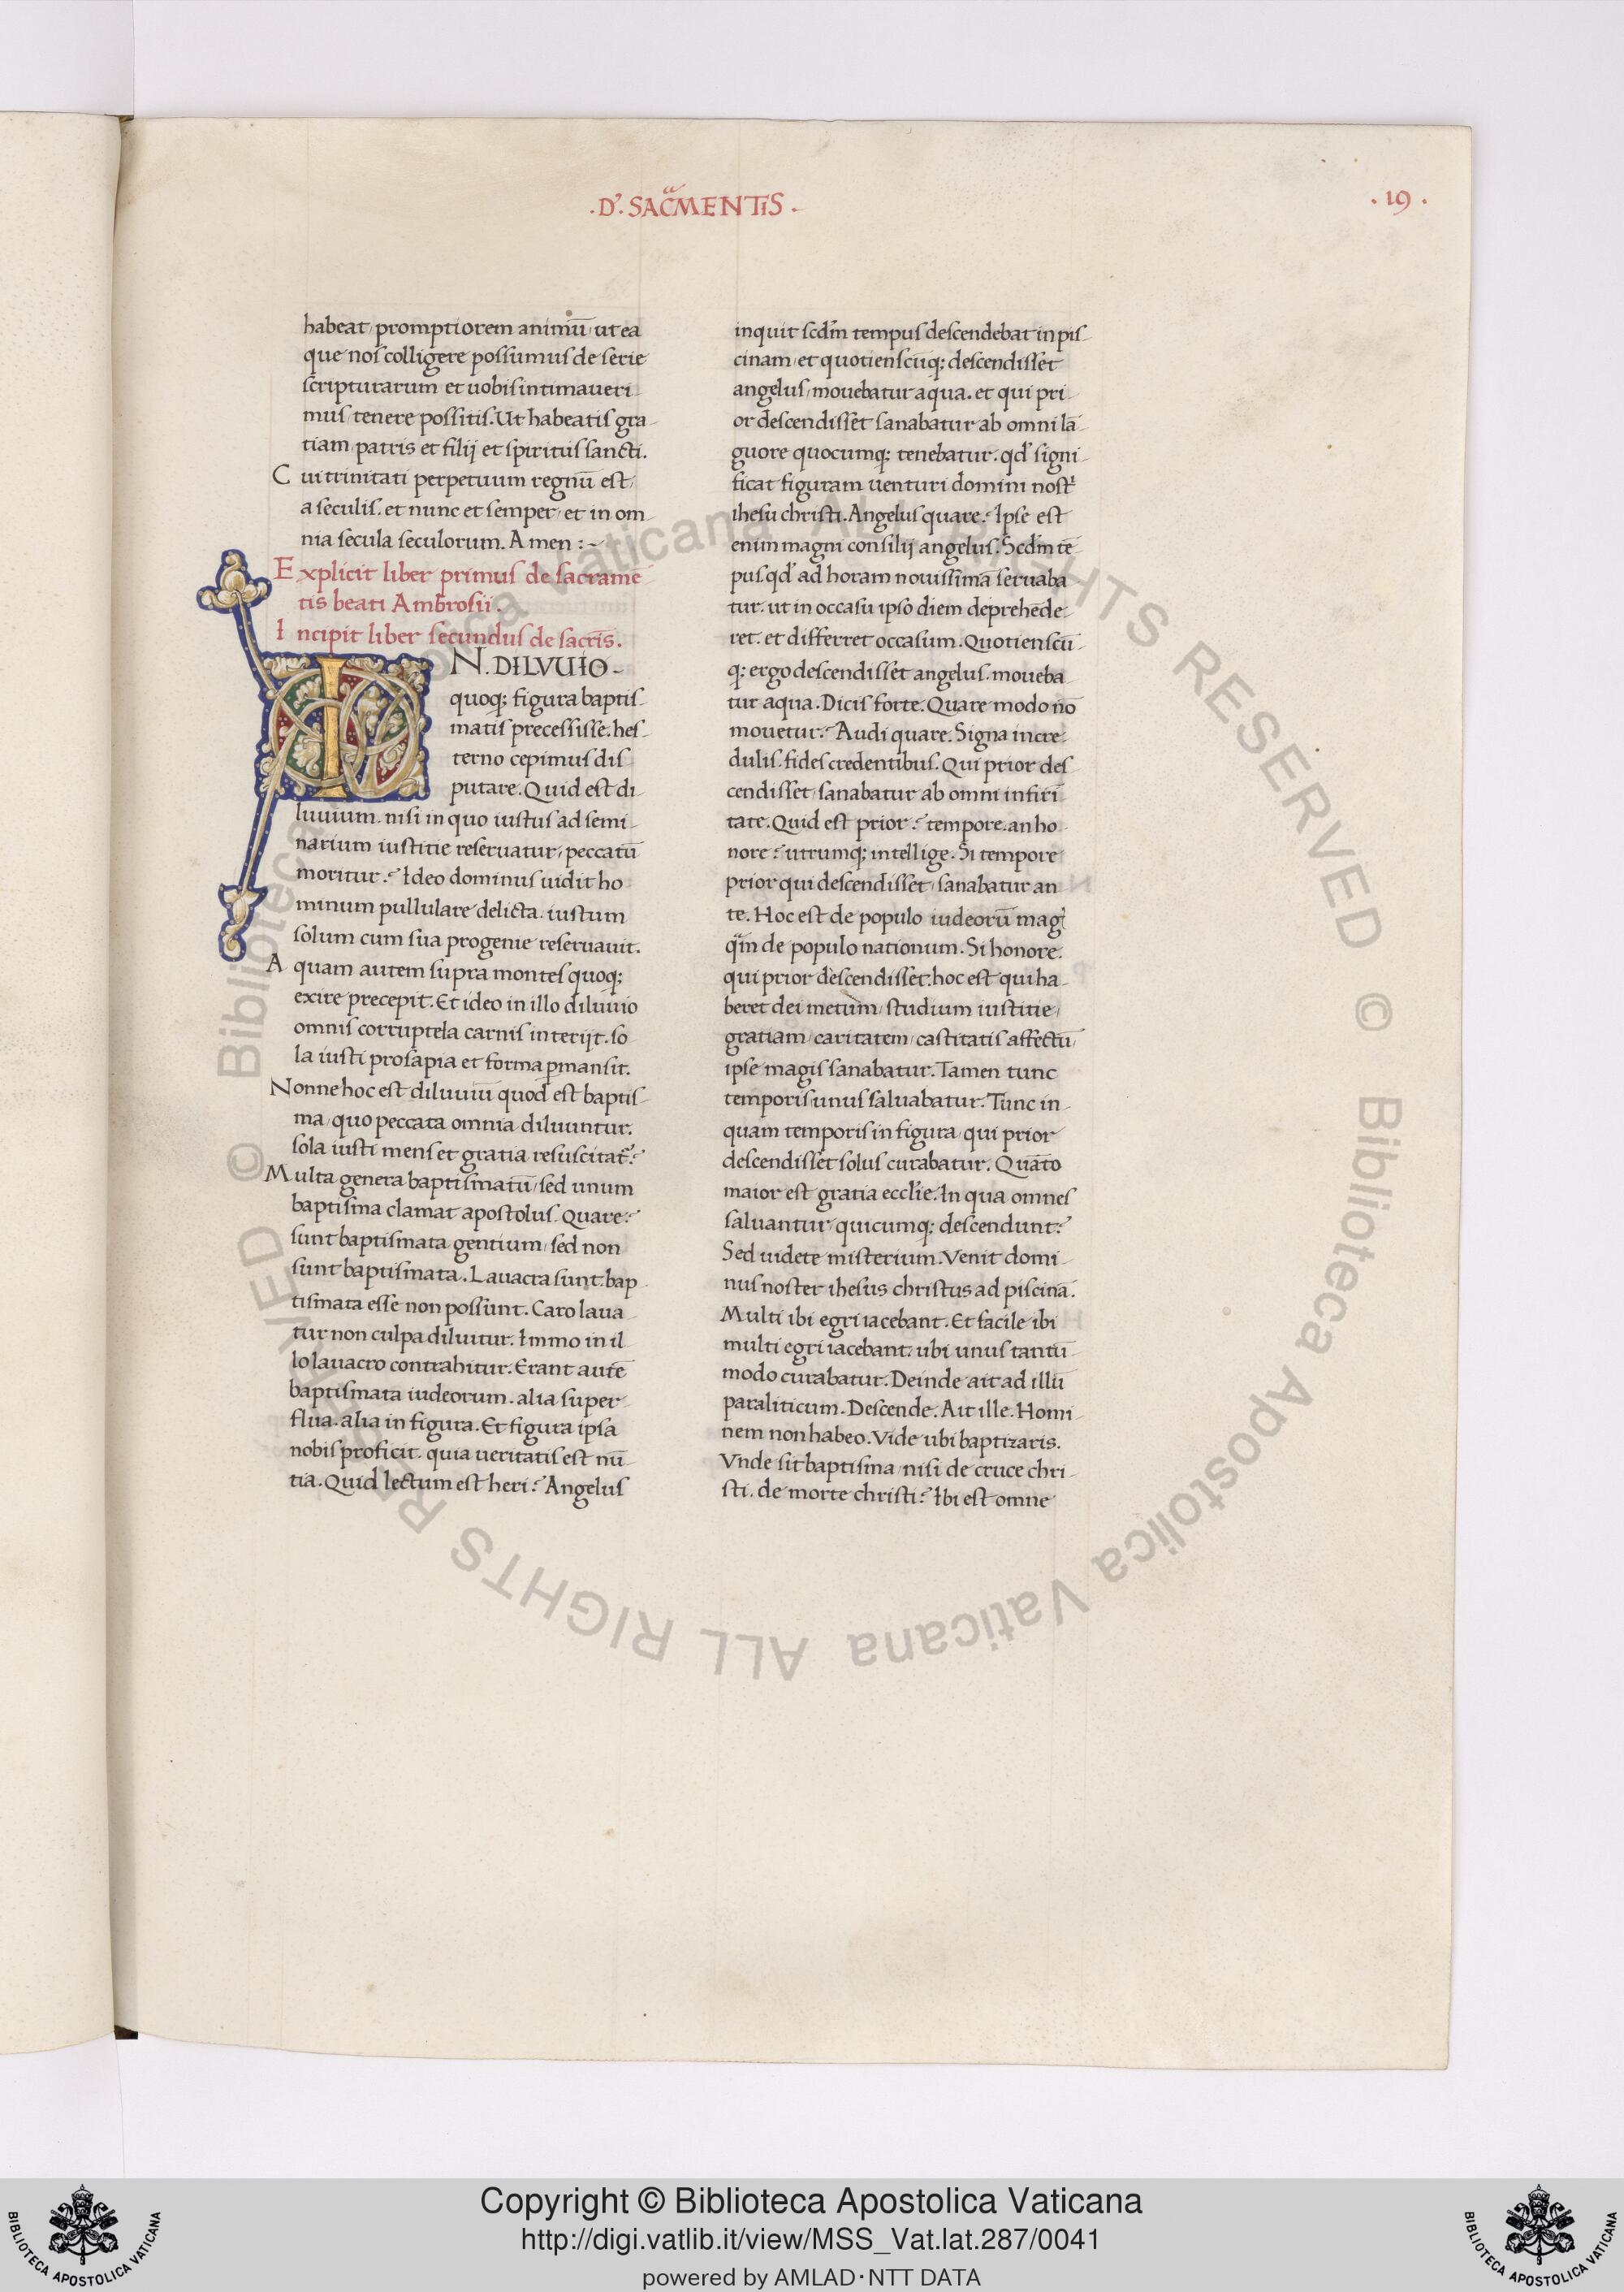 .D'. SAC̃MENTIS .
. 19 .
habeat, promptiorem animū, ut ea
que nos colligere possumus de serie
scripturarum et uobis intimaueri-
mus, tenere possitis. Ut habeatis gra-
tiam, patris et filij et spiritus sancti.
Cui trinitati perpetuum regnū est,
a seculis. et nunc et semper, et in om-
nia secula seculorum. Amen :~
Explicit liber primus de sacramē-
tis beati Ambrosii.
Incipit liber secundus de sacr̄is.
IN. DILVUIO-
quoq; figura baptis-
matis precessisse. hes-
terno cepimus dis
putare. Quid est di-
luuium. nisi in quo iustus ad semi-
narium iustitie reseruatur, peccatū
moritur? Ideo dominus uidit ho
minum pullulare delicta. iustum
solum cum sua progenie reseruauit.
Aquam autem supra montes quoq;
exire precepit. Et ideo in illo diluuio
omnis corruptela carnis interijt. so
la iusti prosapia et forma ꝑmansit.
Nonne hoc est diluuiū quod est baptis-
ma, quo peccata omnia diluuntur.
sola iusti mens et gratia resuscitat᷑?
Multa genera baptismatū, sed unum
baptisma clamat apostolus. Quare?
sunt baptismata gentium, sed non
sunt baptismata. Lauacra sunt. bap-
tismata esse non possunt. Caro laua
tur non culpa diluitur. Immo in il
lo lauacro contrahitur. Erant autē
baptismata iudeorum. alia super-
flua. alia in figura. Et figura ipsa
nobis proficit. quia ueritatis est nū-
tia. Quid lectum est heri? Angelus
inquit scd̄m tempus descendebat in pis-
cinam, et quotienscūq; descendisset
angelus, mouebatur aqua. et qui pri-
or descendisset sanabatur ab omni lā
guore quocumq; tenebatur. qd' signi-
ficat figuram uenturi domini nostr̄i
ihesu christi. Angelus quare? Ipse est
enim magni consilij angelus. Scd̄m tē-
pus qd' ad horam nouissimā seruaba
tur. ut in occasu ipso diem deprehēde-
ret. et differret occasum. Quotienscū-
q; ergo descendisset angelus. moueba
tur aqua. Dicis forte. Quare modo nō
mouetur? Audi quare. Signa incre-
dulis. fides credentibus. Qui prior des
cendisset, sanabatur ab omni infirī
tate. Quid est prior? tempore. an ho-
nore? utrumq; intellige. Si tempore
prior qui descendisset, sanabatur an
te. Hoc est de populo iudeorū magi
q̄m de populo nationum. Si honore.
qui prior descendisset. hoc est qui ha-
beret dei metum, studium iustitie,
gratiam, caritatem, castitatis affectū,
ipse magis sanabatur. Tamen tunc
temporis unus saluabatur. Tunc in-
quam temporis in figura, qui prior
descendisset solus curabatur. Quāto
maior est gratia eccl'ie. In qua omnes
saluantur, quicumq; descendunt?
Sed uidete misterium. Venit domi-
nus noster ihesus christus ad piscinā.
Multi ibi egri iacebant. Et facile ibi
multi egri iacebant. ubi unus tantū-
modo curabatur. Deinde ait ad illū
paraliticum. Descende. Ait ille. Homi-
nem non habeo. Vide ubi baptizaris.
Vnde sit baptisma, nisi de cruce chri-
sti. de morte christi? Ibi est omne
© Biblioteca Apostolica Vaticana ALL RIGHTS RESERVED © Biblioteca Apostolica Vaticana ALL RIGHTS RESERVED
Copyright © Biblioteca Apostolica Vaticana
http://digi.vatlib.it/view/MSS_Vat.lat.287/0041
powered by AMLAD・NTT DATA
BIBLIOTECA APOSTOLICA VATICANA
BIBLIOTECA APOSTOLICA VATICANA